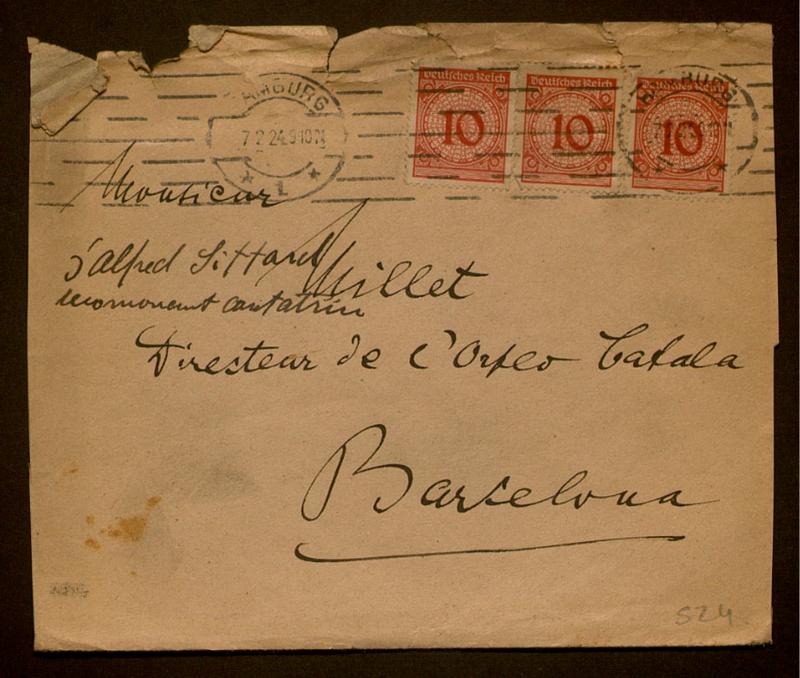 HAMBURG
7 2 24. 9-10 N
* 1 *
Deutsches Reich
10
Deutsches Reich
10
Deutsches Reich
10
HAMBURG
Monsieur
d'Alfred Sittard
Millet
recomanant cantatriu
Directeur de l'Orfeo Catala
Barcelona
524